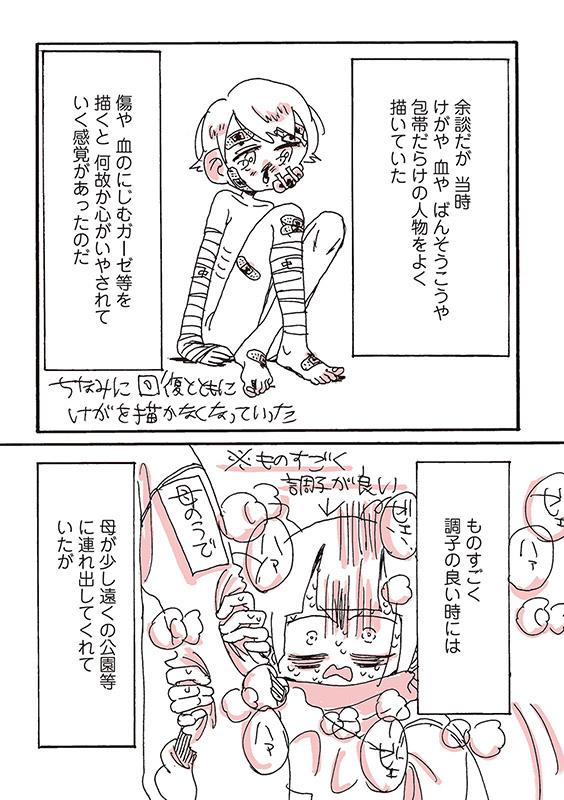 余談だが 当時
けがや 血や ばんそうこうや
包帯だらけの人物をよく
描いていた
傷や 血のにじむガーゼ等を
描くと 何故か心がいやされて
いく感覚があったのだ
ちなみに回復とともに
けがを描かなくなっていった
ものすごく
調子の良い時には
※ものすごく
調子が良い
ハァ
ハァ
母のうで
母が少し遠くの公園等
に連れ出してくれて
いたが